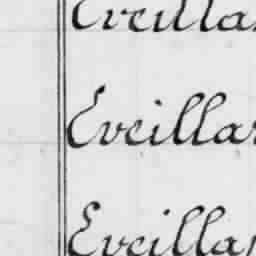 Eveillar
Eveillar
Eveillar